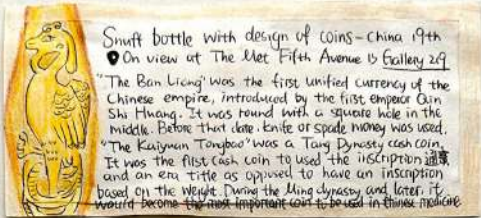 Snuff bottle with design of coins - China 19th
On view at The Met Fifth Avenue is Gallery 219
"The Ban Liang" was the first unified currency of the
Chinese empire, introduced by the first emperor Qin
Shi Huang. It was round with a square hole in the
middle. Before that date, knife or spade money was used.
"The Kaiyuan Tongbao" was a Tang Dynasty cash coin.
It was the first cash coin to used the inscription 通寶
and an era title as opposed to have an inscription
based on the weight. During the Ming dynasty and later, it
would become the most important coin to be used in chinese medicine